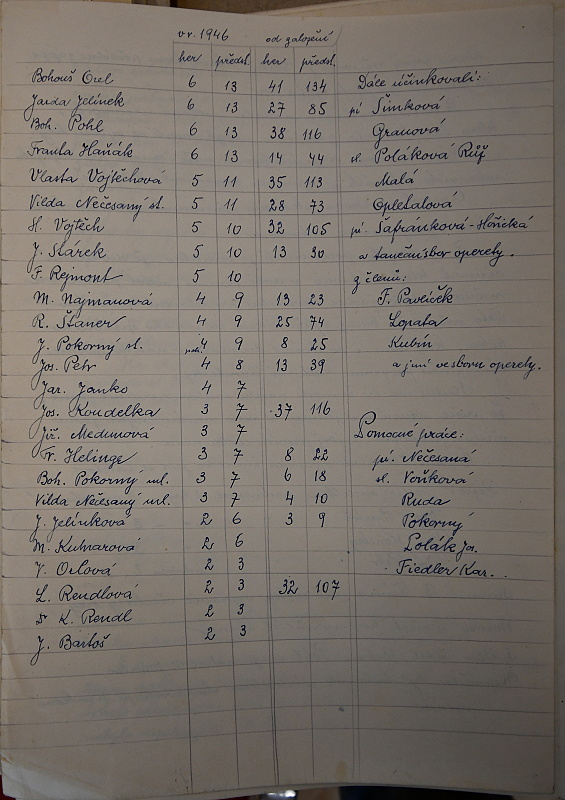 v r. 1946 od založení
her předst. her předst.
Bohouš Orel 6 13 41 134 Dále účinkovali:
Jarda Jelínek 6 13 27 85 pí Šimková
Boh. Pohl 6 13 38 116 Grauová
Franta Haňák 6 13 14 44 sl. Poláková Růž
Vlasta Vojtěchová 5 11 35 113 Malá
Vilda Nečesaný st. 5 11 28 73 Opletalová
H. Vojtěch 5 10 32 105 pí. Šafránková-Hořická
J. Stárek 5 10 13 30 a taneční sbor operety.
F. Rejmont 5 10 z členů:
M. Najmanová 4 9 13 23 F. Pavlíček
R. Štaner 4 9 25 74 Lopata
J. Pokorný st. 4 9 8 25 Kubín
Jos. Petr 4 8 13 39 a jiní ve sboru operety.
Jar. Janko 4 7
Jos. Koudelka 3 7 37 116
Jiř. Medunová 3 7 Pomocné práce:
Fr. Helinge 3 7 8 22 pí. Nečesaná
Boh. Pokorný ml. 3 7 6 18 sl. Voňková
Vilda Nečesaný ml. 3 7 4 10 Ruda
J. Jelínková 2 6 3 9 Pokorný
M. Kubnarová 2 6 Polák Ja.
V. Orlová 2 3 Fiedler Kar.
L. Rendlová 2 3 32 107
K. Rendl 2 3
J. Bartoš 2 3